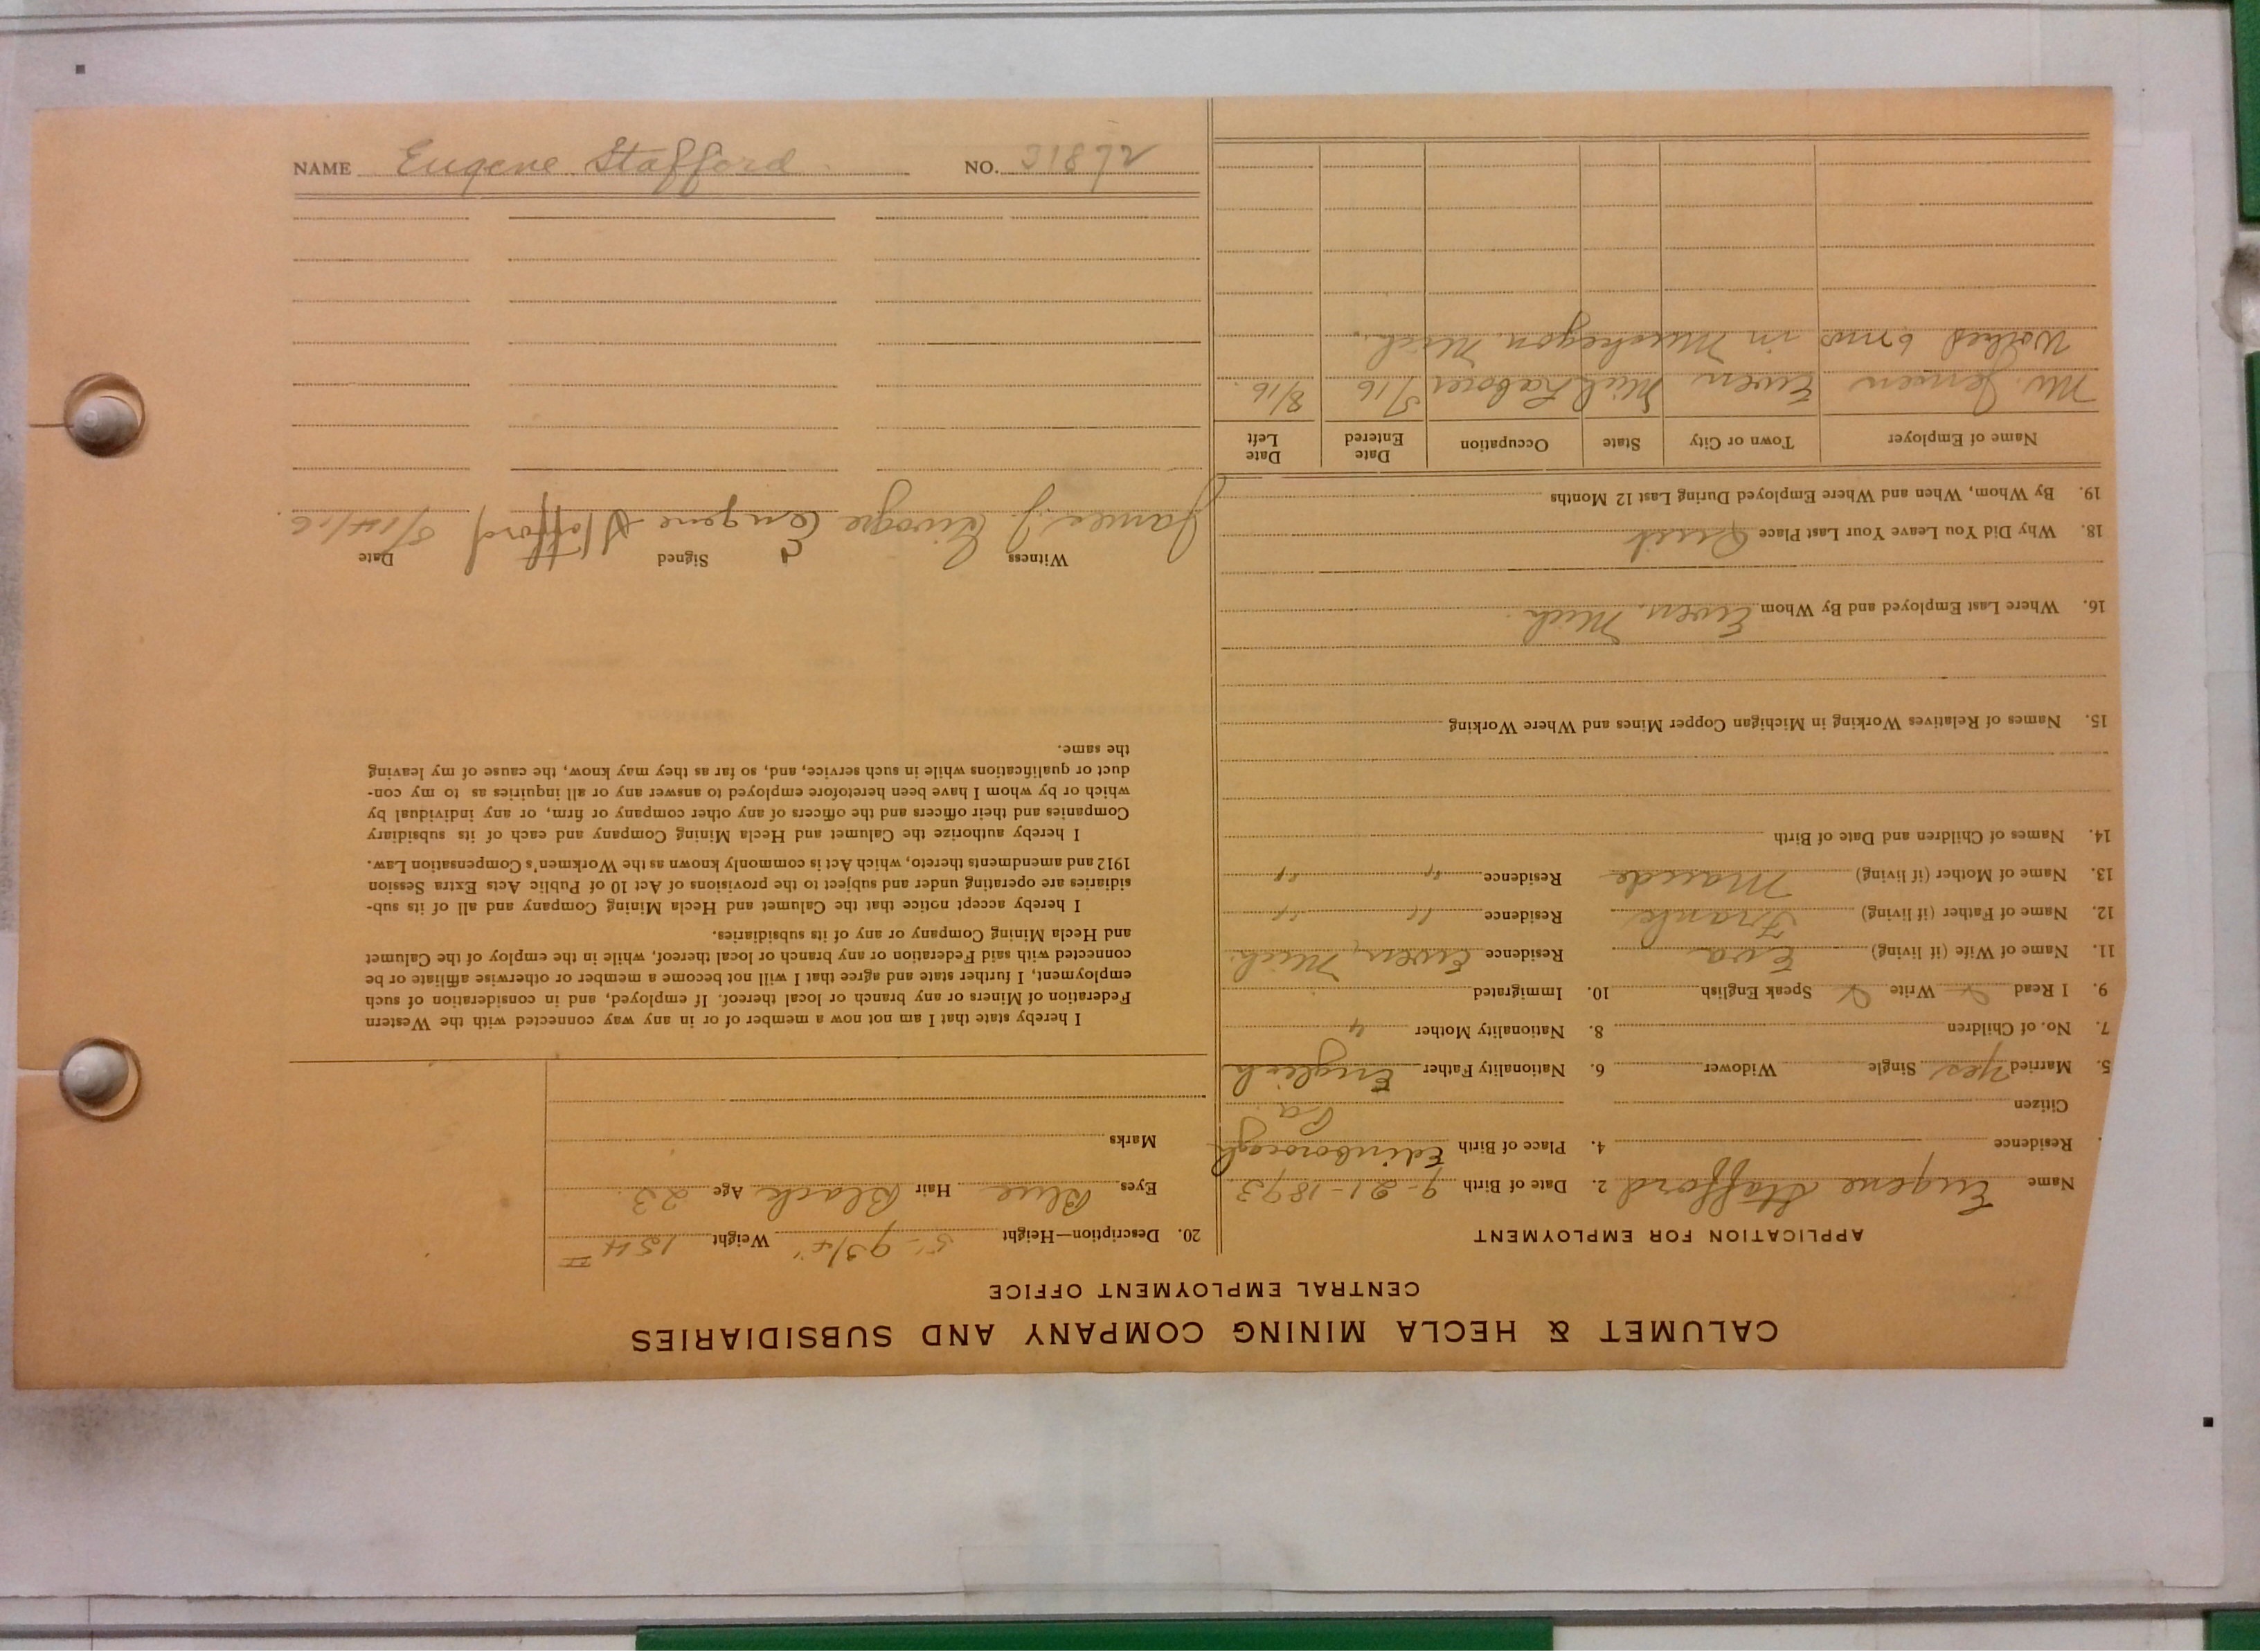 CALUMET & HECLA MINING COMPANY AND SUBSIDIARIES
CENTRAL EMPLOYMENT OFFICE
APPLICATION FOR EMPLOYMENT
Name Eugene Stafford 2. Date of Birth 9-21-1893
Residence 4. Place of Birth Edinborough
Citizen Pa.
5. Married Yes Single Widower 6. Nationality Father English
7. No. of Children 8. Nationality Mother "
9. I Read Write Speak English 10. Immigrated
11. Name of Wife (if living) Eva Residence Ewen, Mich.
12. Name of Father (if living) Frank Residence " "
13. Name of Mother (if living) Maude Residence " "
14. Names of Children and Date of Birth
15. Names of Relatives Working in Michigan Copper Mines and Where Working
16. Where Last Employed and By Whom Ewen, Mich.
18. Why Did You Leave Your Last Place Quit
19. By Whom, When and Where Employed During Last 12 Months
Name of Employer Town or City State Occupation Date Entered Date Left
Mr. Jensen Ewen Mich Laborer 5/16 8/16.
Worked 6 mos in Muskegon Mich.
20. Description—Height 5'-9 3/4" Weight 154 #
Eyes Blue Hair Black Age 23
Marks
I hereby state that I am not now a member of or in any way connected with the Western
Federation of Miners or any branch or local thereof. If employed, and in consideration of such
employment, I further state and agree that I will not become a member or otherwise affiliate or be
connected with said Federation or any branch or local thereof, while in the employ of the Calumet
and Hecla Mining Company or any of its subsidiaries.
I hereby accept notice that the Calumet and Hecla Mining Company and all of its sub-
sidiaries are operating under and subject to the provisions of Act 10 of Public Acts Extra Session
1912 and amendments thereto, which Act is commonly known as the Workmen's Compensation Law.
I hereby authorize the Calumet and Hecla Mining Company and each of its subsidiary
Companies and their officers and the officers of any other company or firm, or any individual by
which or by whom I have been heretofore employed to answer any or all inquiries as to my con-
duct or qualifications while in such service, and, so far as they may know, the cause of my leaving
the same.
Witness Signed Date
James J. Eugene Stafford
NAME Eugene Stafford NO. 31872